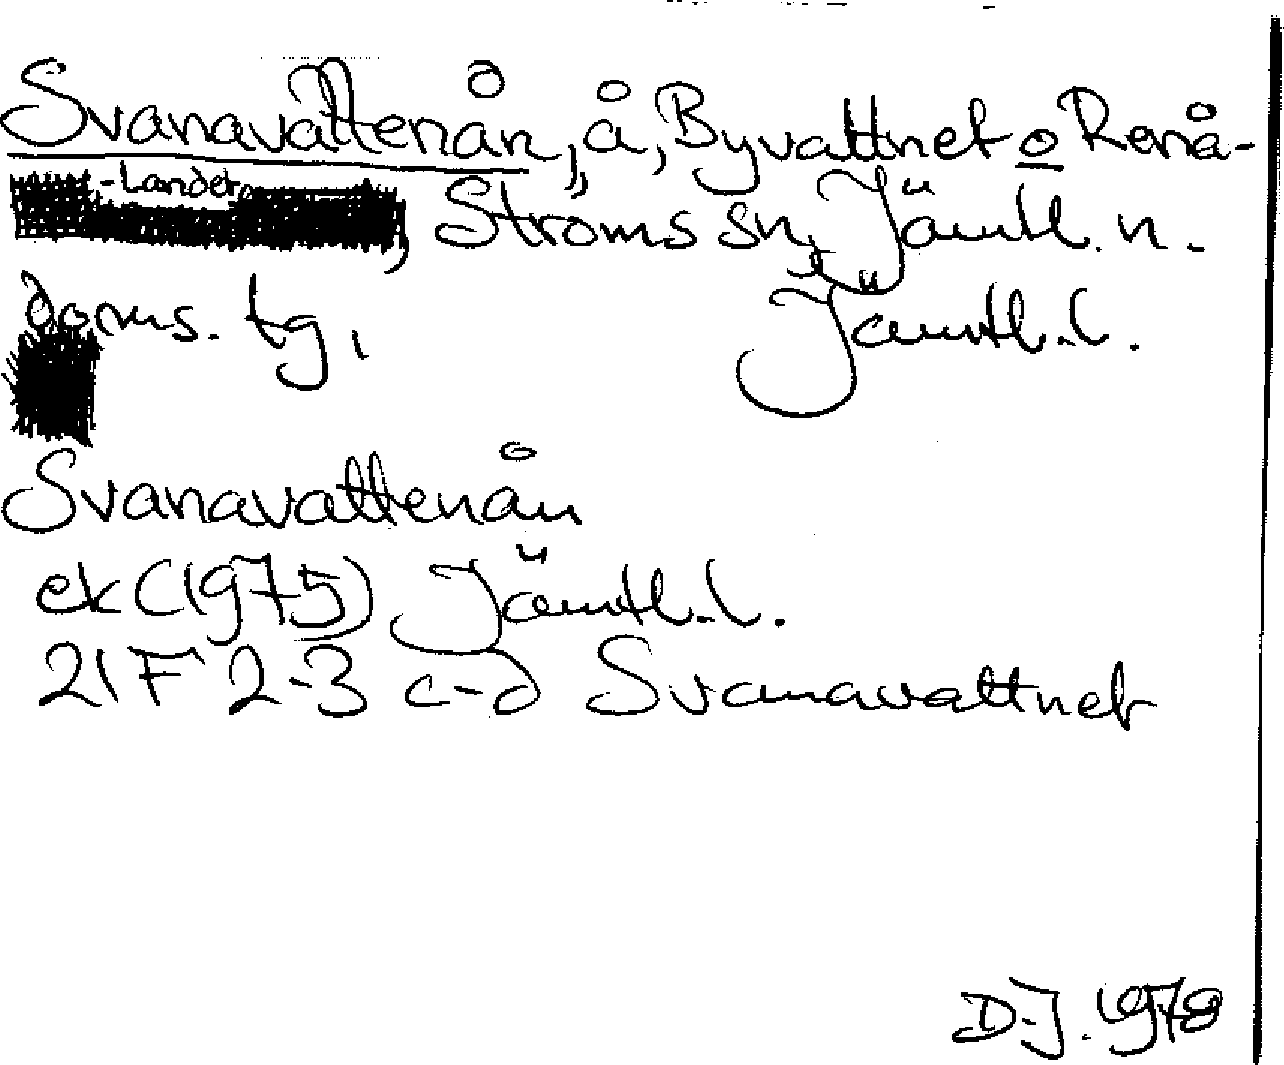 Svanavattenån, å, Byvattnet o Renå-
-Landet, Ströms sn, Jämtl. n.
doms. tg, Jämtl. l.
Svanavattenån
ek (1975) Jämtl. l.
21F 2-3 c-d Svanavattnet
D-J. 1978